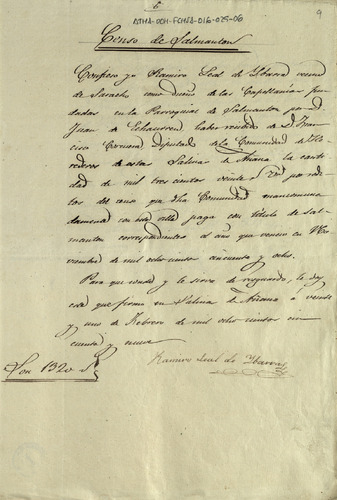 6
ATHA-DOH-FCHSA-016-029-06
9
Censo de Salmanton
Confieso yo Ramiro Leal de Ybarra vecino
de Saracho como dueño de las Capellanias fun
dadas en la Parroquial de Salmanton por D.
Juan de Echaurren haber recibido de D. Fran
cisco Corcuera Diputado de la Comunidad de He
rederos de estas Salinas de Añana la canti
dad de mil trescientos veinte r. von por redi
tos del censo que dha Comunidad mancomuna
damente con esta villa paga con titulo de Sal
manton correspondientes al año que vencio en No
viembre de mil ochocientos cincuenta y ocho.
Para que conste y le sirva de resguardo, le doy
este que firmo en Salinas de Añana a veinte
y uno de Febrero de mil ochocientos cin
cuenta y nueve
Son 1320 r
Ramiro Leal de Ybarra